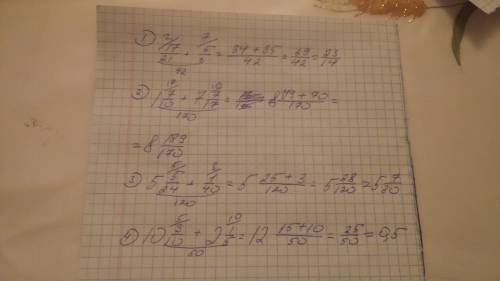 1) 2/17/21 + 7/5/6 = 34+35/42 = 69/42 = 23/14
42
2) 1 17/7/10 + 7 10/7/17 = 8 119+70/170 =
170
= 8 189/170
3) 5 5/5/24 + 3/1/40 = 5 25+3/120 = 5 28/120 = 5 7/30
120
4) 10 5/3/10 + 2 10/1/5 = 12 15+10/50 = 25/50 = 0,5
50